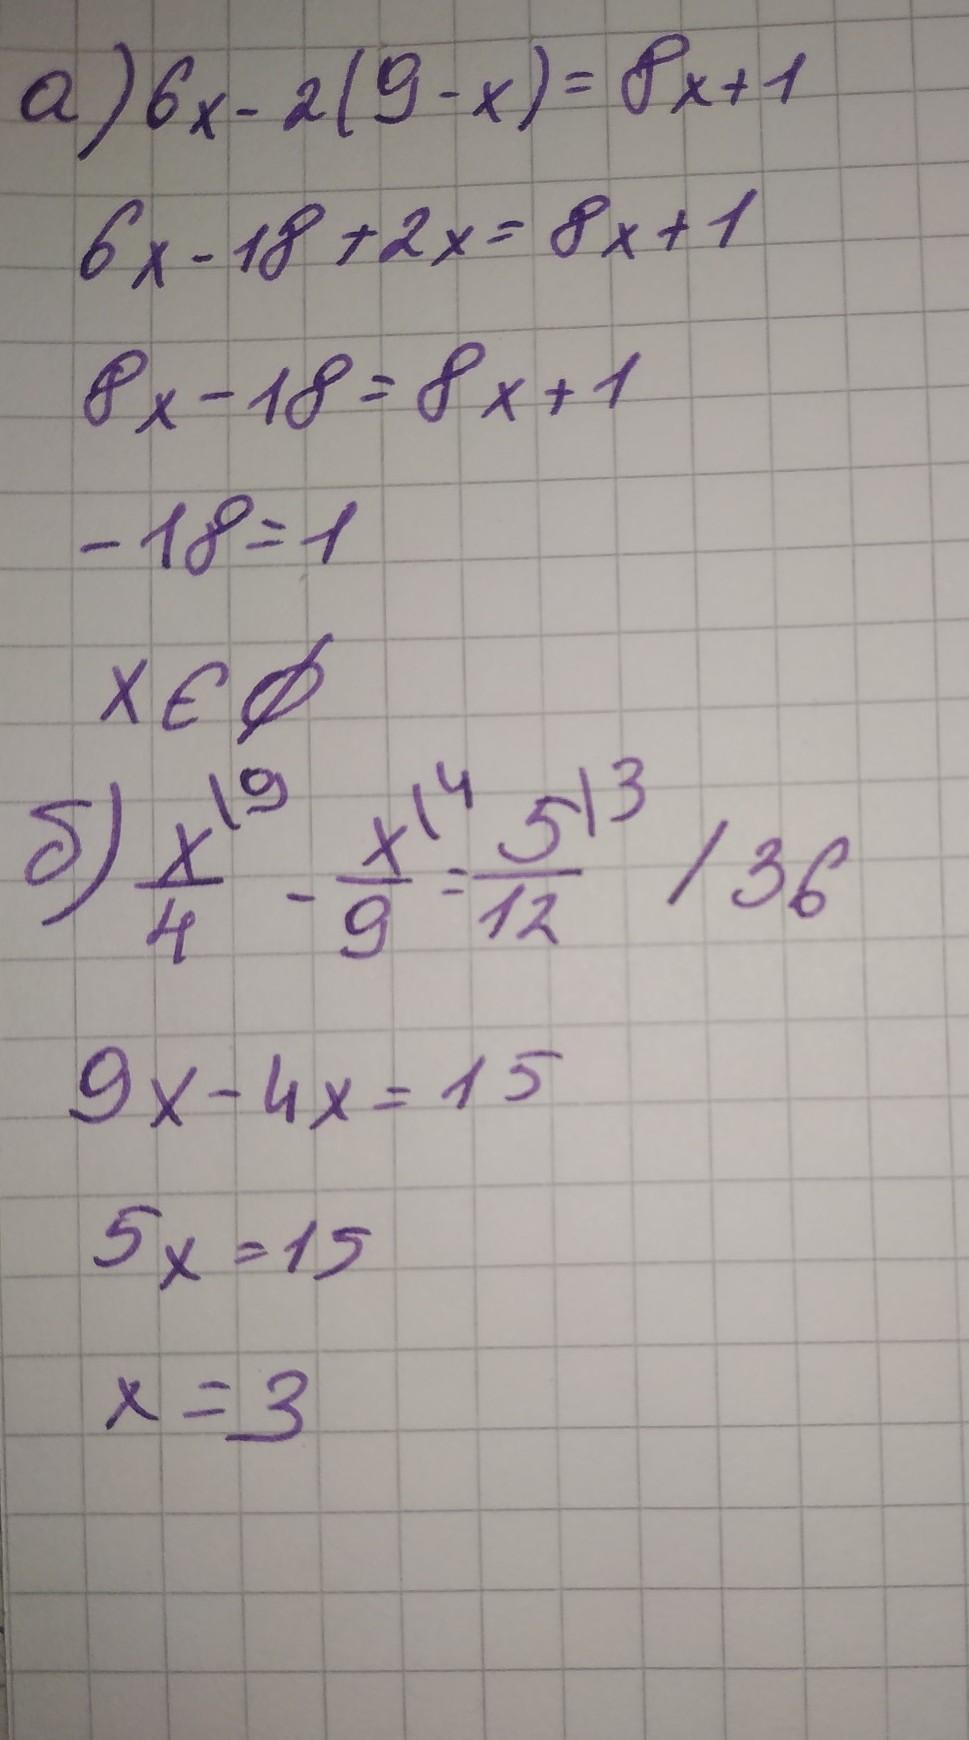 а) 6x - 2(9 - x) = 8x + 1
6x - 18 + 2x = 8x + 1
8x - 18 = 8x + 1
- 18 = 1
x ∈ ∅
б) x\9/4 - x\4/9 = 5\3/12 / 36
9x - 4x = 15
5x = 15
x = 3